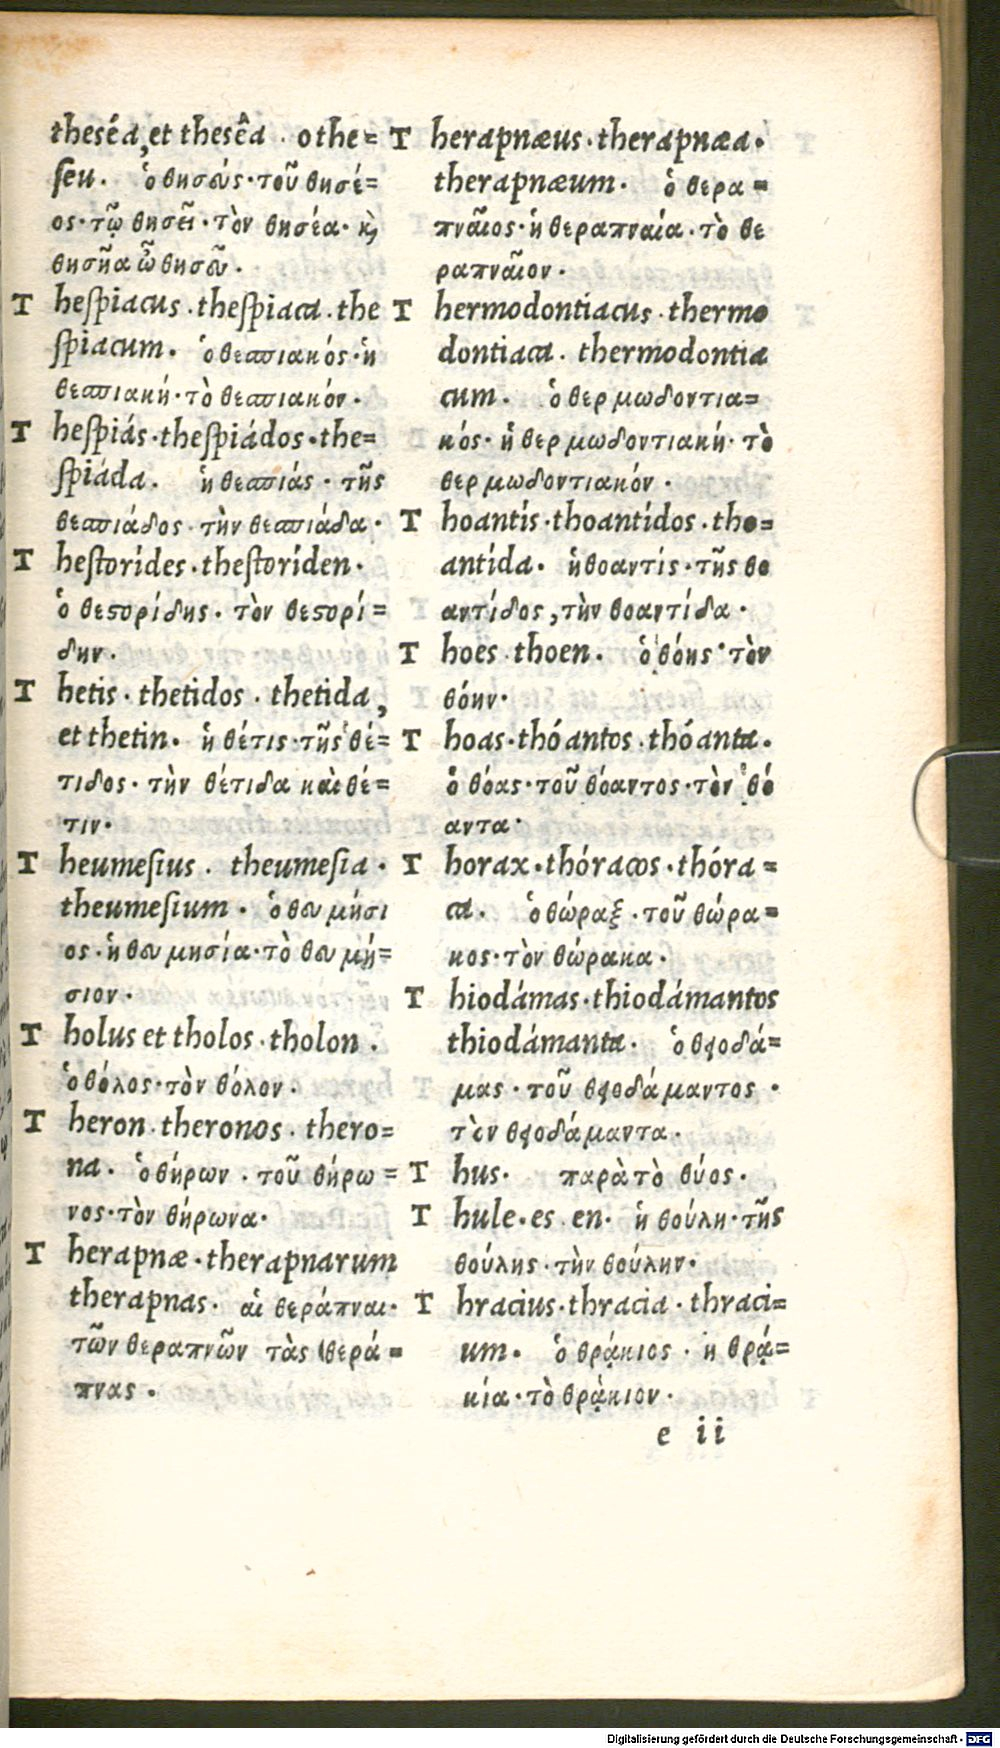 theséa, et thesêa · o the=
ſeu. ὁ θησεύς · τοῦ θησέ=
ος · τῷ θησεῖ · τὸν θησέα · κ̀
θησῆα ὦ θησεῦ.
T heſpiacus · theſpiaca · the
ſpiacum. ὁ θεσπιακός · ἡ
θεσπιακή · τὸ θεσπιακόν.
T heſpiás · theſpiádos · the=
ſpiáda. ἡ θεσπιάς · τῆς
θεσπιάδος · τὴν θεσπιάδα.
T heſtorídes · theſtoríden.
ὁ θεϛορίδης · τὸν θεϛορί=
δην.
T hetis · thetidos · thetida,
et thetin. ἡ θέτις · τῆς θέ=
τιδος · τὴν θέτιδα καὶ θέ=
τιν.
T heumeſius · theumeſia ·
theumeſium. ὁ θευμήσι
ος · ἡ θευμησία · τὸ θευμή=
σιον.
T holus et tholos · tholon.
ὁ θόλος · τὸν θόλον.
T heron · theronos · thero=
na. ὁ θήρων · τοῦ θήρω=
νος · τὸν θήρωνα.
T herapnæ · therapnarum
therapnas. αἱ θεράπναι ·
τῶν θεραπνῶν τὰς θερά=
πνας.
T herapnæus · therapnæa ·
therapnæum. ὁ θερα=
πναῖος · ἡ θεραπναία · τὸ θε
ραπναῖον.
T hermodontiacus · thermo
dontiaca · thermodontia
cum. ὁ θερμωδοντια=
κός · ἡ θερμωδοντιακή · τὸ
θερμωδοντιακόν.
T hoantís · thoantídos · tho=
antída. ἡ θοαντίς · τῆς θο
αντίδος, τὴν θοαντίδα.
T hoes · thoen. ὁ θόης · τὸν
θόην.
T hoas · thóantos · thóanta.
ὁ θόας · τοῦ θόαντος · τὸν θό
αντα.
T horax · thóracos · thóra=
ca. ὁ θώραξ · τοῦ θώρα=
κος · τὸν θώρακα.
T hiodámas · thiodámantos
thiodámanta. ὁ θιοδά=
μας · τοῦ θιοδάμαντος ·
τὸν θιοδάμαντα.
T hus. παρὰ τὸ θύος.
T hule · es en. ἡ θούλη · τῆς
θούλης · τὴν θούλην.
T hracius · thracia · thraci=
um. ὁ θρᾴκιος · ἡ θρᾳ=
κία · τὸ θρᾴκιον.
e ii
Digitalisierung gefördert durch die Deutsche Forschungsgemeinschaft - DFG